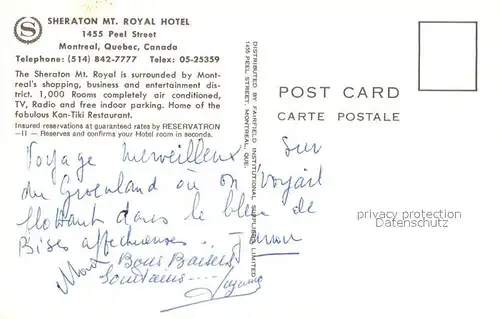 SHERATON MT. ROYAL HOTEL
1455 Peel Street
Montreal, Quebec, Canada
Telephone: (514) 842-7777 Telex: 05-25359
The Sheraton Mt. Royal is surrounded by Mont-
real's shopping, business and entertainment dis-
trict. 1,000 Rooms completely air conditioned,
TV, Radio and free indoor parking. Home of the
fabulous Kon-Tiki Restaurant.
Insured reservations at guaranteed rates by RESERVATRON
-II- Reserves and confirms your Hotel room in seconds.
DISTRIBUTED BY FAIRFIELD INSTITUTIONAL SUPPLIERS LIMITED
1455 PEEL STREET, MONTREAL, QUE.
POST CARD
CARTE POSTALE
Voyage merveilleux sur
du Groenland où on voyait
flottant dans le bleu de
Bises affectueuses..
Bons Baisers
Lointains----
privacy protection
Datenschutz
S